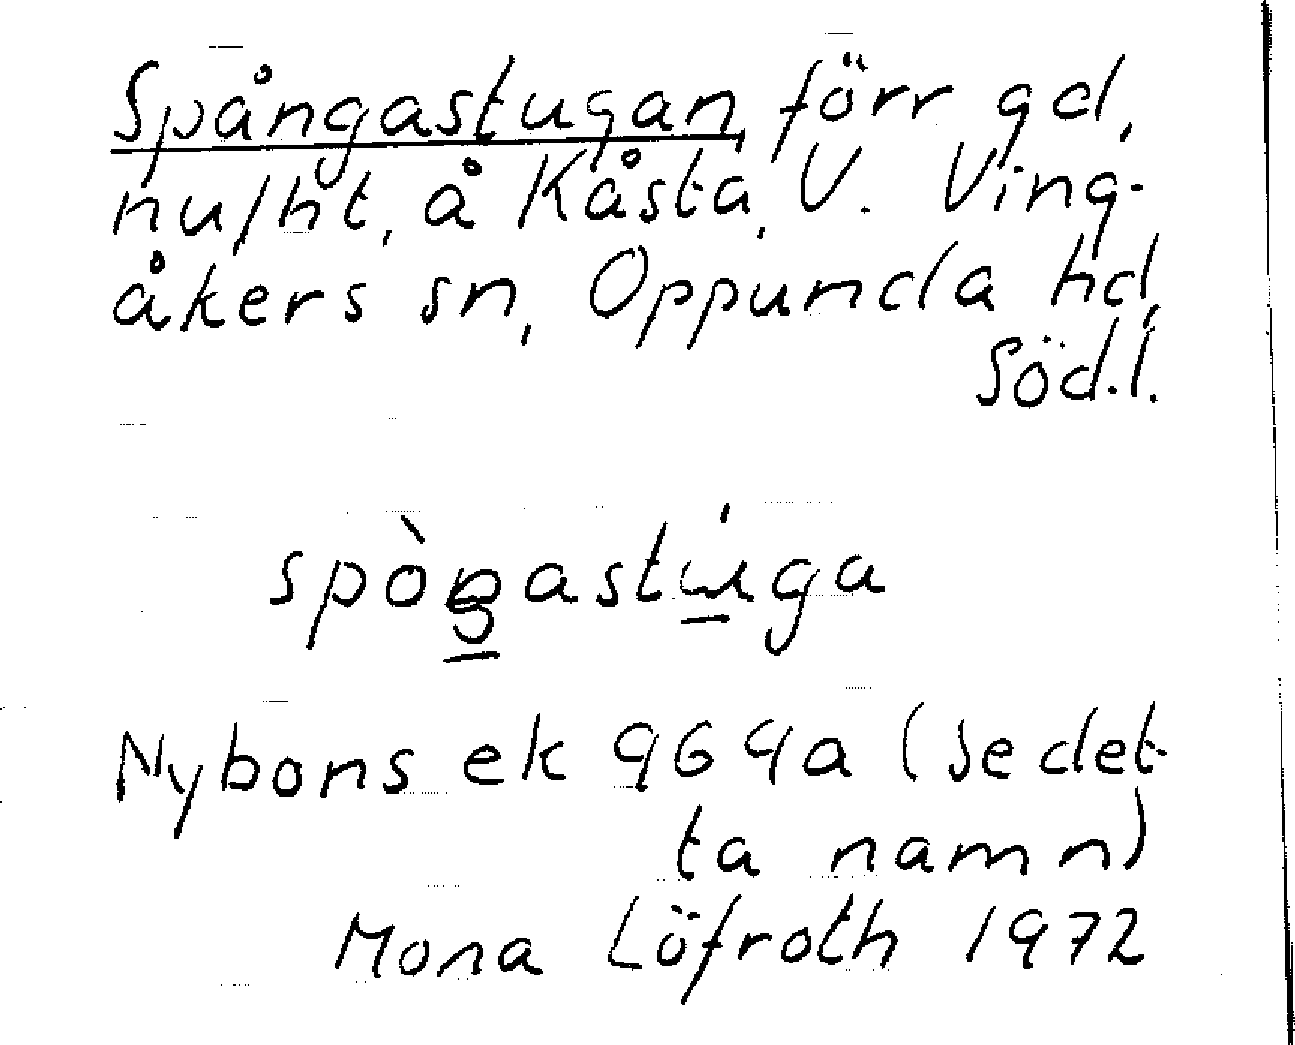 Spångastugan, förr gd,
nu lht, å Kåsta, V. Ving-
åkers sn, Oppunda hd,
Söd.l.
spòŋastúga
Nybons ek 964a (se det-
ta namn)
Mona Löfroth 1972